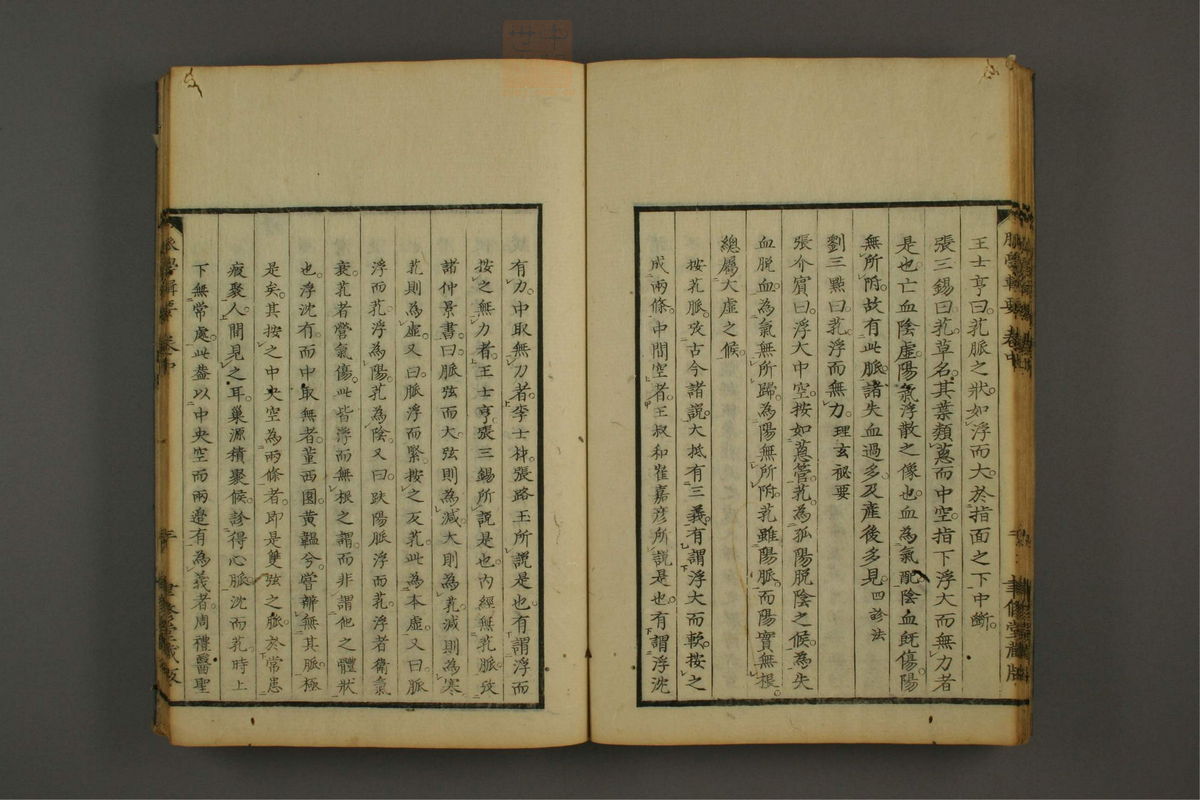 王士亨曰芤脈之狀如浮而大於指面之下中斷
張三錫曰芤草名其葉類蔥而中空指下浮大而無力者
是也亡血陰虛陽氣浮散之像也血為氣配陰血旣傷陽
無所附故有此脈諸失血過多及産後多見四診法
劉三點曰芤浮而無力理玄祕要
張介賓曰浮大中空按如蔥管芤為孤陽脫陰之候為失
血脫血為氣無所歸為陽無所附芤雖陽脈而陽實無根
總屬大虛之候
按芤脈攷古今諸說大抵有三義有謂浮大而軟按之
成兩條中間空者王叔和崔嘉彦所說是也有謂浮沈
有力中取無力者李士材張路玉所說是也有謂浮而
按之無力者王士亨張三錫所說是也內經無芤脈攷
諸仲景書曰脈弦而大弦則為減大則為芤減則為寒
芤則為虛又曰脈浮而緊按之反芤此為本虛又曰脈
浮而芤浮為陽芤為陰又曰趺陽脈浮而芤浮者衛氣
衰芤者營氣傷此皆浮而無根之謂而非謂他之體狀
也浮沈有而中取無者董西園黃韞兮嘗辨無其脈極
是矣其按之中央空為兩條者即是雙弦之脈於常患
癥聚人間見之耳巢源積聚候診得心脈沈而芤時上
下無常處此蓋以中央空而兩邊有為義者周禮醫聖
脈學輯要 卷中
聿修堂藏版